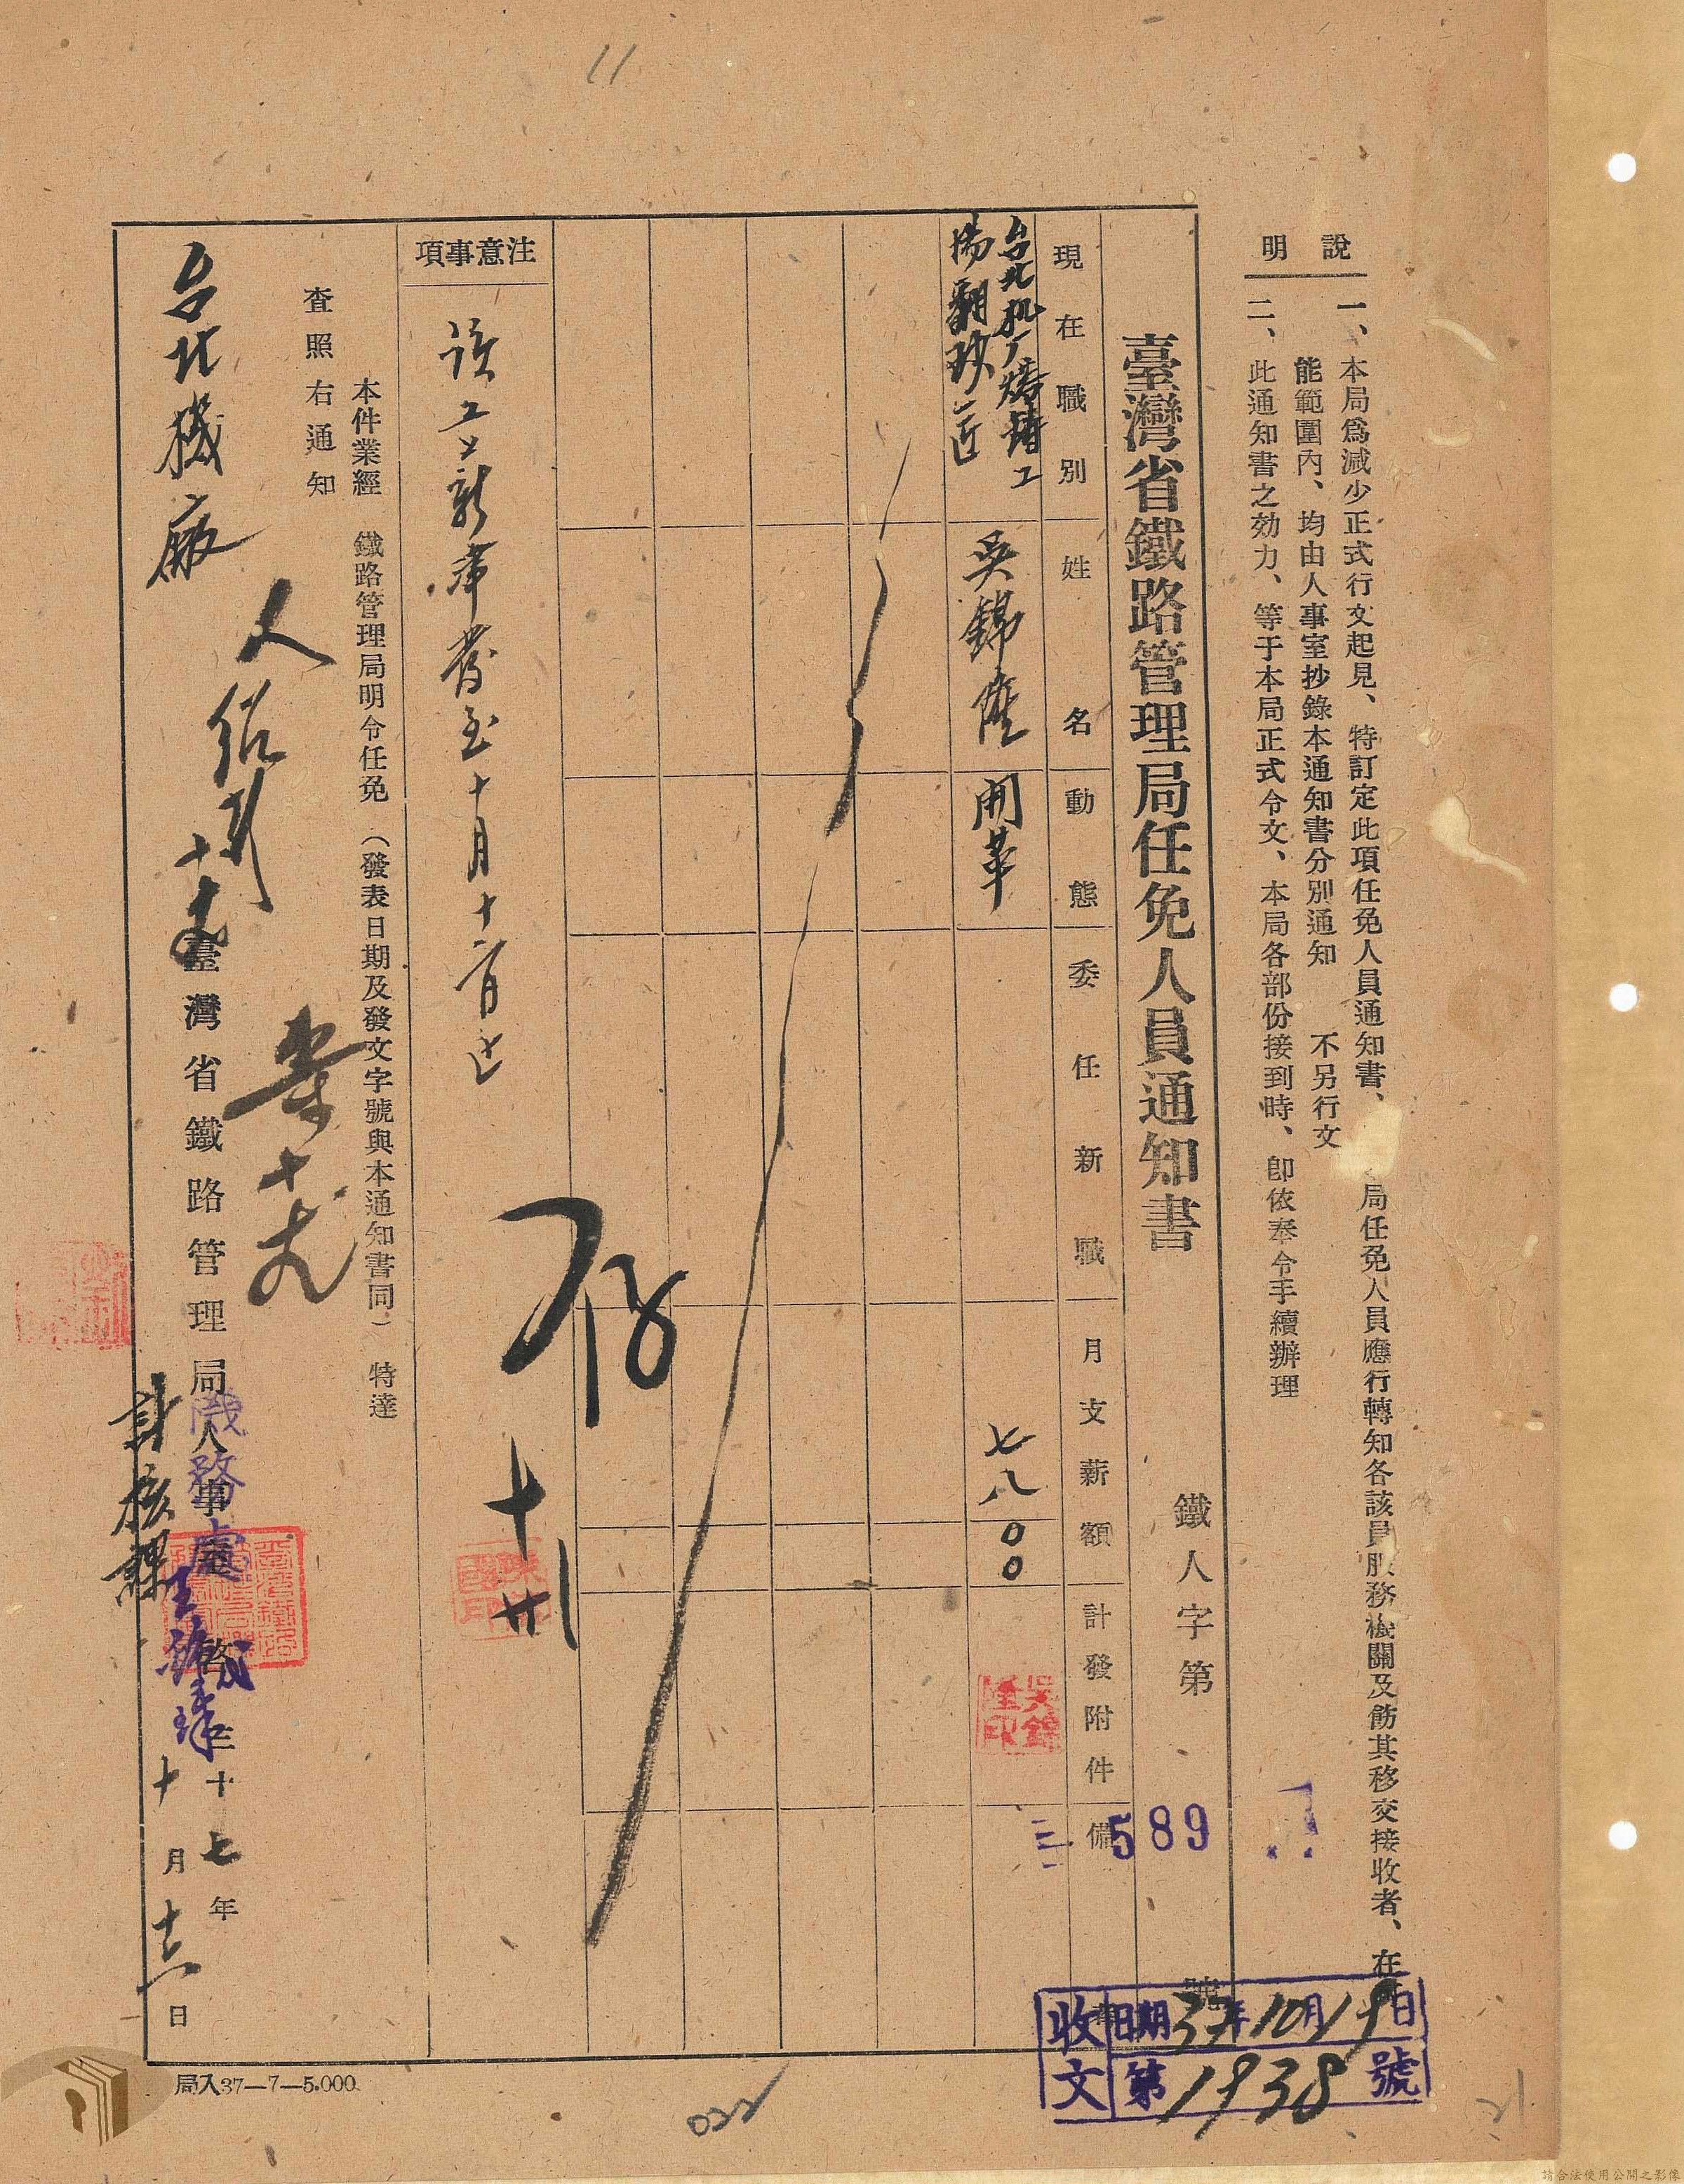 11
說明
一、本局爲減少正式行文起見、特訂定此項任免人員通知書、局任免人員應行轉知各該員服務機關及飭其移交接收者、在
能範圍內、均由人事室抄錄本通知書分別通知 不另行文
二、此通知書之効力、等于本局正式令文、本局各部份接到時、卽依奉令手續辦理
臺灣省鐵路管理局任免人員通知書
鐵人字第 589 號
現在職別
姓名
動態
委任新職
月支薪額
計發附件
備
台北机厂鑄工
場翻砂匠
吳錦
開革
七八〇〇
吳錦 印
注意事項
該工工薪準發至十月十六日止
存
十
本件業經 鐵路管理局明令任免(發表日期及發文字號與本通知書同)特達
查照右通知
台北機廠
臺灣省鐵路管理局人事室啓
三十七年
十月十六日
機務處
計核課
收文
日期37年10月19日
第1938號
局人37—7—5.000
022
21
請合法使用公開之影像